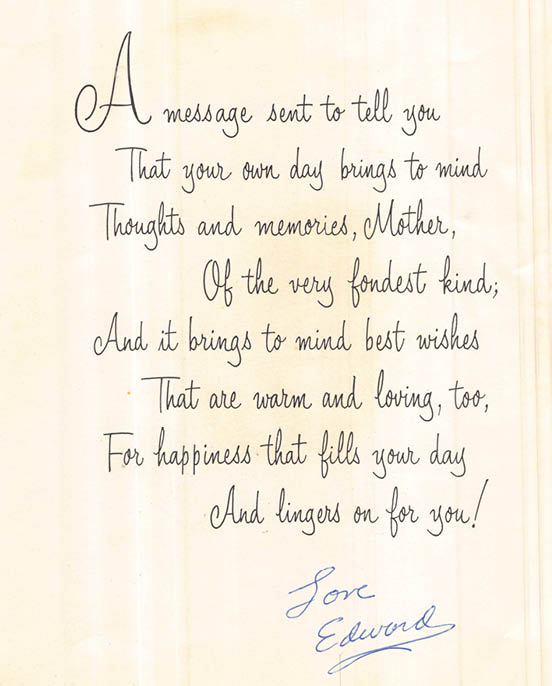 A message sent to tell you
That your own day brings to mind
Thoughts and memories, Mother,
Of the very fondest kind;
And it brings to mind best wishes
That are warm and loving, too,
For happiness that fills your day
And lingers on for you!
Love
Edward